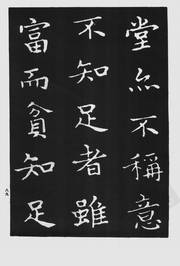 堂亦不稱意
不知足者雖
富而貧知足
八九